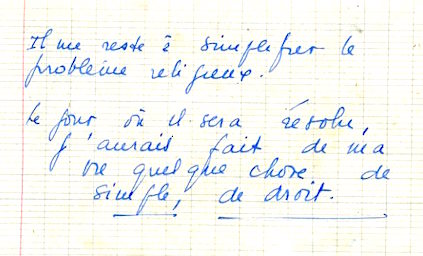 Il me reste à simplifier le
problème religieux.
Le jour où il sera résolu,
j'aurais fait de ma
vie quelque chose de
simple, de droit.